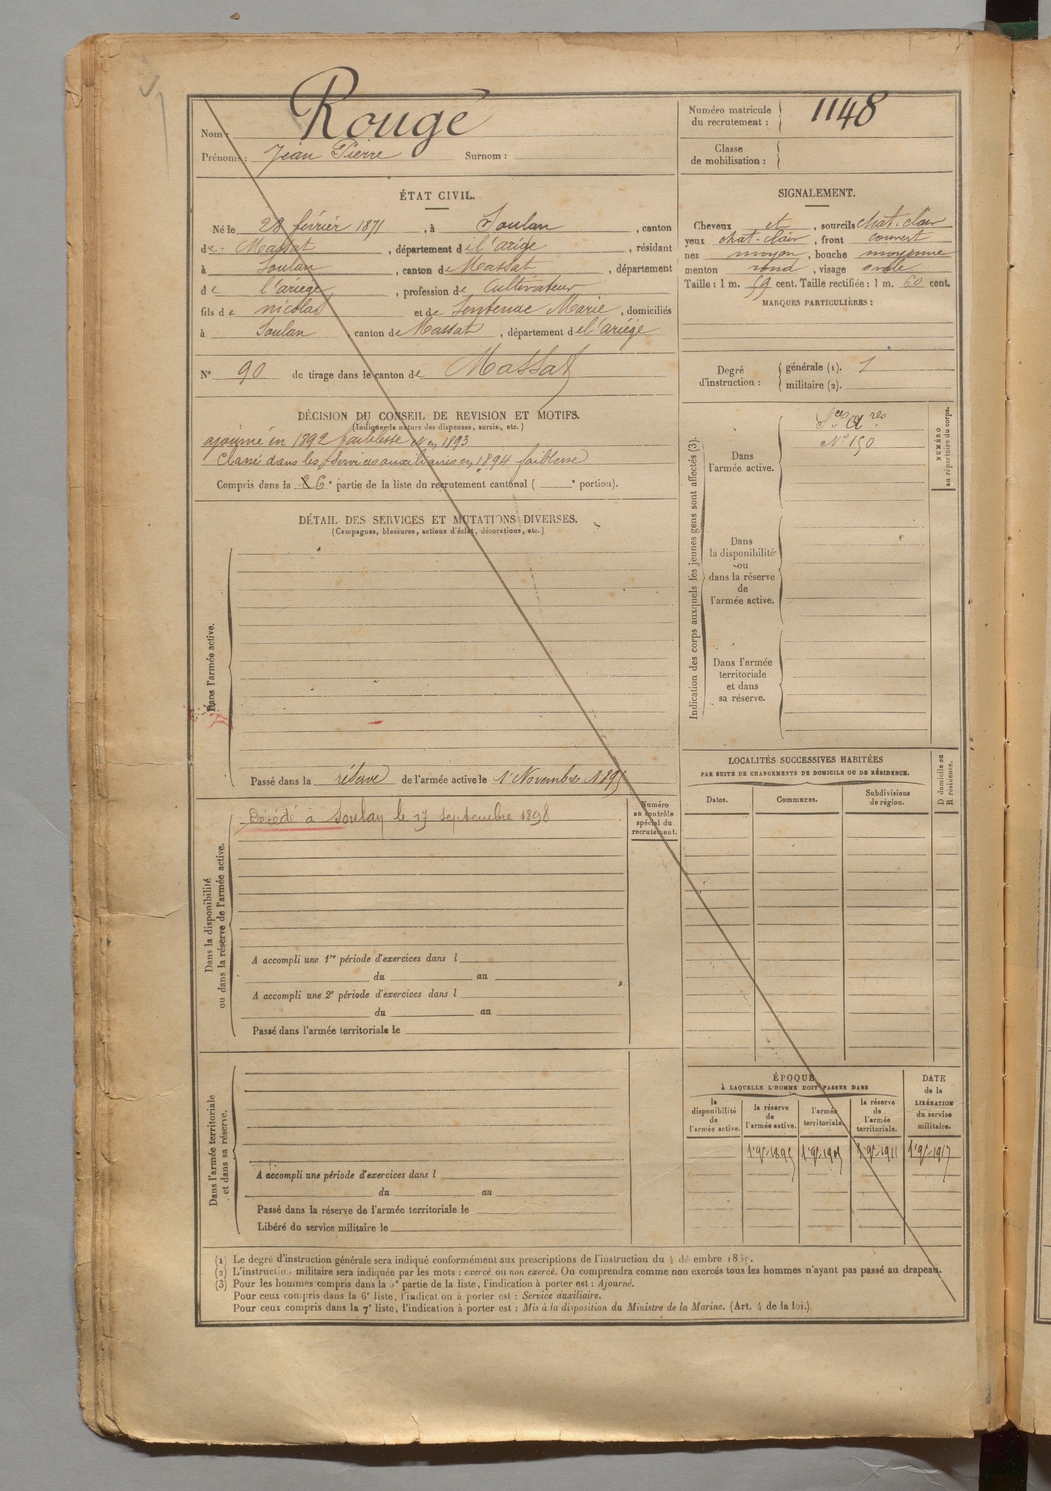 Nom : Rouge
Prénoms : Jean Pierre Surnom :
Numéro matricule
du recrutement : 1148
Classe
de mobilisation :
ÉTAT CIVIL.
Né le 28 février 1871, à Soulan, canton
de Massat, département de l'ariège, résidant
à Soulan, canton de Massat, département
de l'ariège, profession de Cultivateur
fils de nicolas et de Sentenac Marie, domiciliés
à Soulan canton de Massat, département de l'ariége
N° 90 de tirage dans le canton de Massat
DÉCISION DU CONSEIL DE REVISION ET MOTIFS.
(Indiquer la nature des dispenses, sursis, etc.)
ajourné en 1892 faiblesse et en 1893
Classé dans les Services auxiliaires en 1894 faiblesse
Compris dans la 6e partie de la liste du recrutement cantonal ( e portion).
DÉTAIL DES SERVICES ET MUTATIONS DIVERSES.
(Campagnes, blessures, actions d'éclat, décorations, etc.)
Dans l'armée active.
Passé dans la réserve de l'armée active le 1 Novembre 1895
Dans la disponibilité
ou dans la réserve de l'armée active.
Décédé à Soulan le 17 septembre 1898
Numéro
au contrôle
spécial du
recrutement.
A accompli une 1re période d'exercices dans l
du au
A accompli une 2e période d'exercices dans l
du au
Passé dans l'armée territoriale le
Dans l'armée territoriale
et dans sa réserve.
A accompli une période d'exercices dans l
du au
Passé dans la réserve de l'armée territoriale le
Libéré du service militaire le
SIGNALEMENT.
Cheveux et, sourcils chat. clair
yeux chat. clair, front couvert
nez moyen, bouche moyenne
menton rond, visage ovale
Taille : 1 m. 59 cent. Taille rectifiée : 1 m. 60 cent.
MARQUES PARTICULIÈRES :
Degré
d'instruction :
générale (1). 1
militaire (2).
Indication des corps auxquels les jeunes gens sont affectés (3).
Dans
l'armée active.
Sces Ares
N° 150
NUMÉRO
au répertoire du corps.
Dans
la disponibilité
ou
dans la réserve
de
l'armée active.
Dans l'armée
territoriale
et dans
sa réserve.
LOCALITÉS SUCCESSIVES HABITÉES
PAR SUITE DE CHANGEMENTS DE DOMICILE OU DE RÉSIDENCE.
Dates. Communes. Subdivisions
de région.
D domicile ou
R résidence.
ÉPOQUE
À LAQUELLE L'HOMME DOIT PASSER DANS
la
disponibilité
de
l'armée active.
la réserve
de
l'armée active.
l'armée
territoriale.
la réserve
de
l'armée
territoriale.
DATE
de la
LIBÉRATION
du service
militaire.
1 9bre 1895 1 9bre 1905 1 9bre 1911 1 9bre 1917
(1) Le degré d'instruction générale sera indiqué conformément aux prescriptions de l'instruction du 4 décembre 1889.
(2) L'instruction militaire sera indiquée par les mots : exercé ou non exercé. On comprendra comme non exercés tous les hommes n'ayant pas passé au drapeau.
(3) Pour les hommes compris dans la 5e partie de la liste, l'indication à porter est : Ajourné.
Pour ceux compris dans la 6e liste, l'indication à porter est : Service auxiliaire.
Pour ceux compris dans la 7e liste, l'indication à porter est : Mis à la disposition du Ministre de la Marine. (Art. 4 de la loi.)